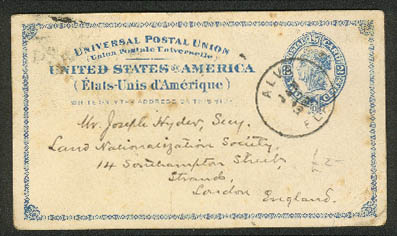 UNIVERSAL POSTAL UNION
(Union Postale Universelle)
UNITED STATES OF AMERICA
(États-Unis d'Amérique)
WRITE ONLY THE ADDRESS ON THIS SIDE
ALV
Mr. Joseph Hyder, Secy.
Land Nationalization Society,
14 Southampton Street
Strand,
London
England.